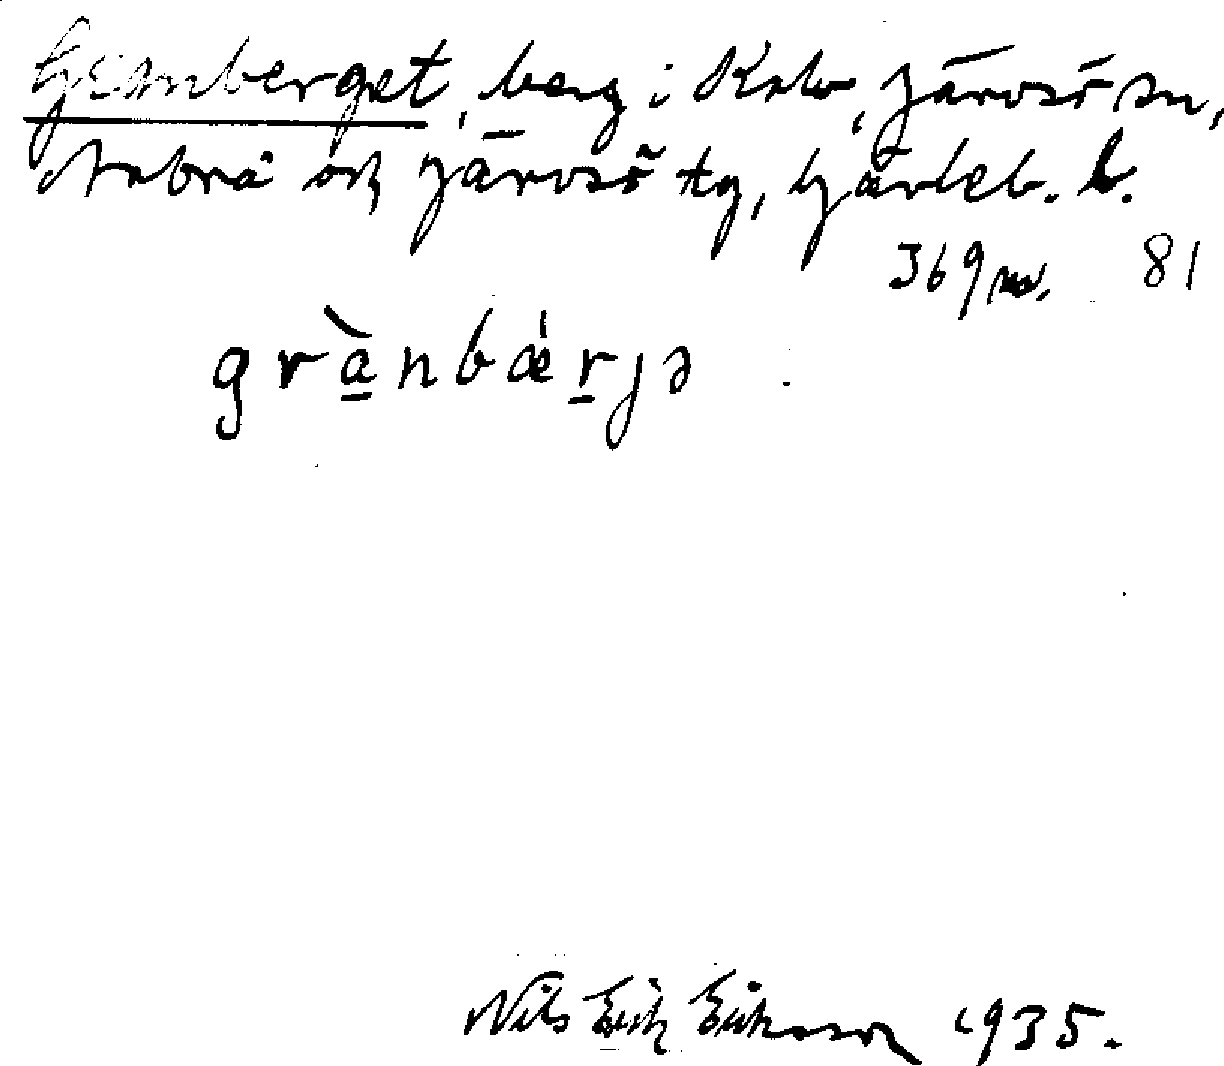 Granberget, berg i Kalv, Järvsö sn,
Arbrå och Järvsö tg, Gävleb. l.
369 m. 81
gràṉbǽṟjə
Nils Erik Eriksson 1935.